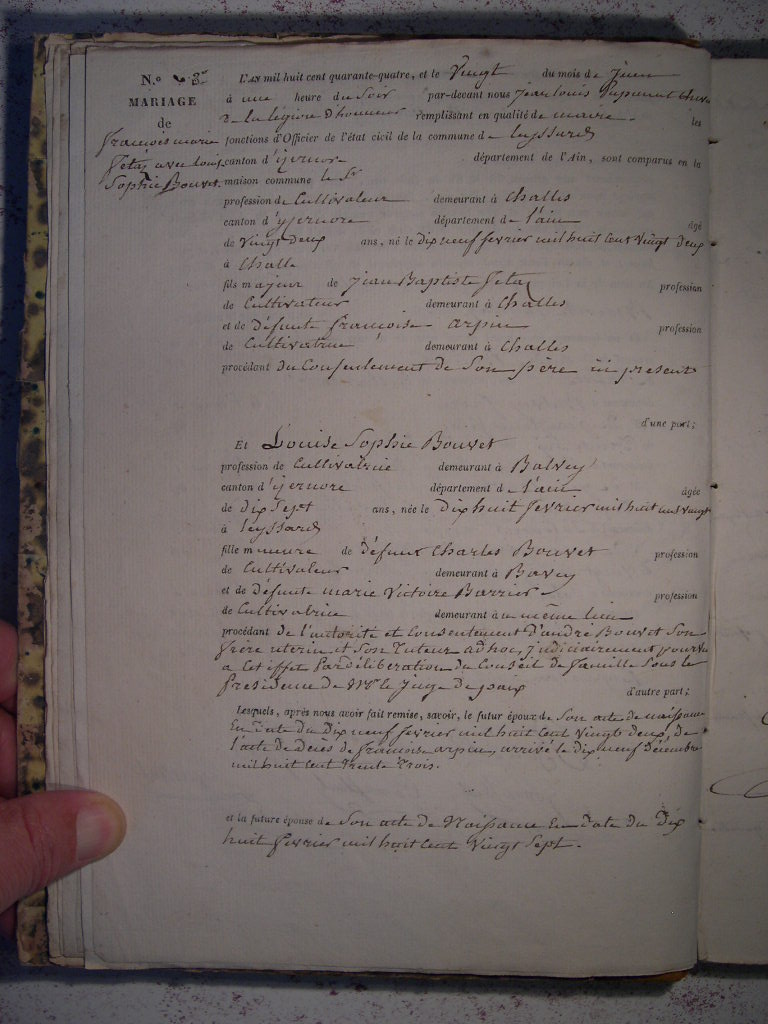 N.o 3
MARIAGE
de
françois marie
feta avec Louise
Sophie Bouvet.
L'AN mil huit cent quarante-quatre, et le Vingt du mois de Juin
à une heure du Soir par-devant nous jean louis
de la légion d'honneur remplissant en qualité de maire les
fonctions d'Officier de l'état civil de la commune de Leyssard
canton d'ijernore département de l'Ain, sont comparus en la
maison commune le Sr
profession de Cultivateur demeurant à Challes
canton d'yjernore département de l'ain âgé
de vingt deux ans, né le dix neuf fevrier mil huit Cent vingt deux
à Challe
fils majeur de jean Baptiste feta profession
de Cultivateur demeurant à Challes
et de défunte françoise arpin profession
de Cultivatrice demeurant à Challes
procédant du Consentement de Son père ici present
d'une part;
Et Louise Sophie Bouvet
profession de Cultivatrice demeurant à Balvey
canton d'ijernore département de l'ain âgée
de dix Sept ans, née le dix huit fevrier mil huit cent vingt
à leyssard
fille mineure de défunt Charles Bouvet profession
de Cultivateur demeurant à Bavey
et de défunte marie Victoire Barrier profession
de Cultivatrice demeurant à u même lieu
procédant de l'autorité et Consentement d'andré Bouvet Son
frère uterin et Son Tuteur adhoc, judiciairement pourvu
a Cet effet Par délibération du Conseil de famille Sous la
Presidence de Mr le juge de paix
d'autre part;
Lesquels, après nous avoir fait remise, savoir, le futur époux de Son acte de naissance
En Date du Dix neuf fevrier mil huit Cent Vingt deux, de
l'acte de décès de francoise arpin, arrivé le Dix neuf Décembre
mil huit Cent Trente Trois.
et la future épouse de Son acte de Naissance En Date du Dix
huit fevrier mil huit Cent Vingt Sept.